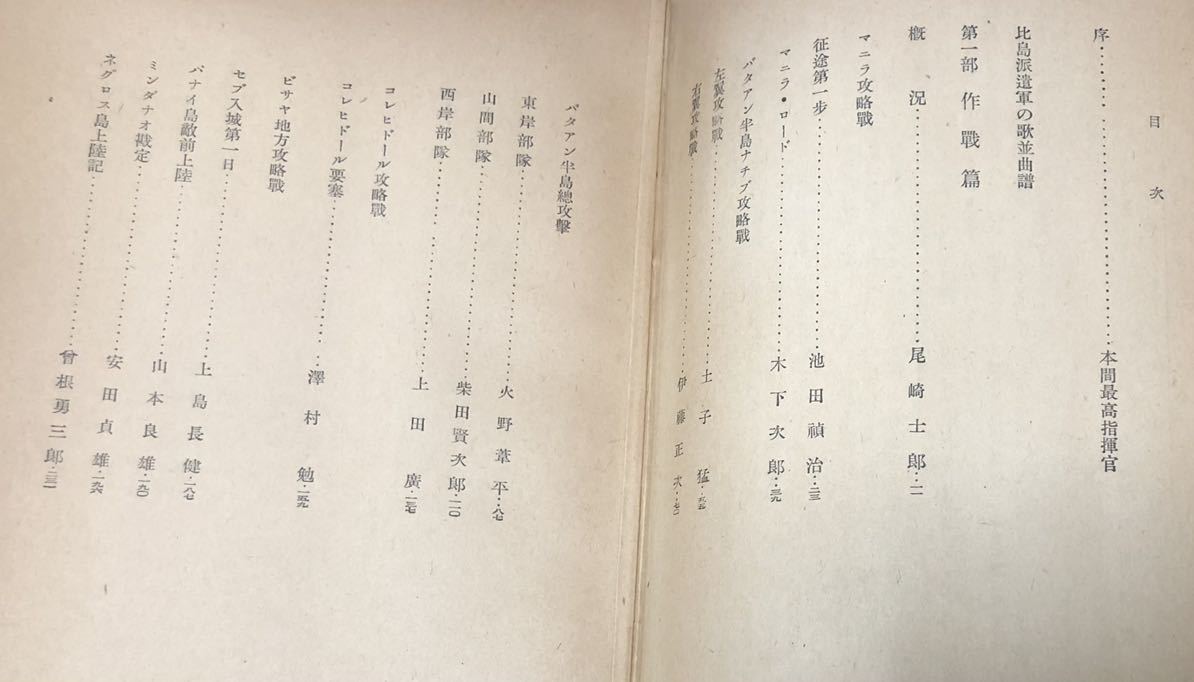 目次
序………本間最高指揮官
比島派遣軍の歌並曲譜
第一部 作戰篇
概況………尾崎士郎‥一一
マニラ攻略戰
征途第一步………池田禎治‥二三
マニラ・ロード………木下次郎‥三九
バタアン半島ナチブ攻略戰
左翼攻略戰………土子猛‥
右翼攻略戰………伊藤正次‥七〇
バタアン半島總攻擊
東岸部隊………火野葦平‥八七
山間部隊………柴田賢次郎‥一一〇
西岸部隊………上田廣‥一三七
コレヒドール攻略戰
コレヒドール要塞………澤村勉‥一五九
ビサヤ地方攻略戰
セブ入城第一日………上島長健‥一八七
パナイ島敵前上陸………山本良雄‥一九〇
ミンダナオ戡定………安田貞雄‥一九六
ネグロス島上陸記………曾根勇三郎‥二三一